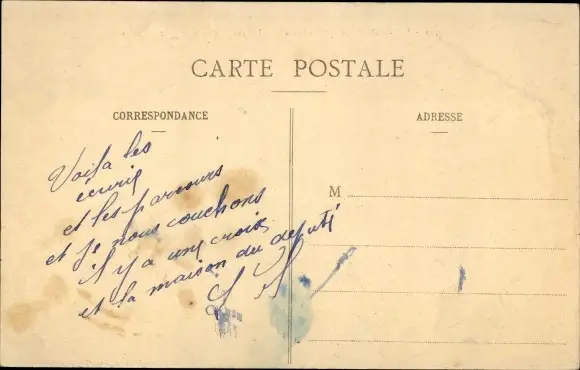 CARTE POSTALE
CORRESPONDANCE
ADRESSE
Voila les
écurie
et les parcours
et je nous couchons
il y a une croix
et la maison du deputé
M